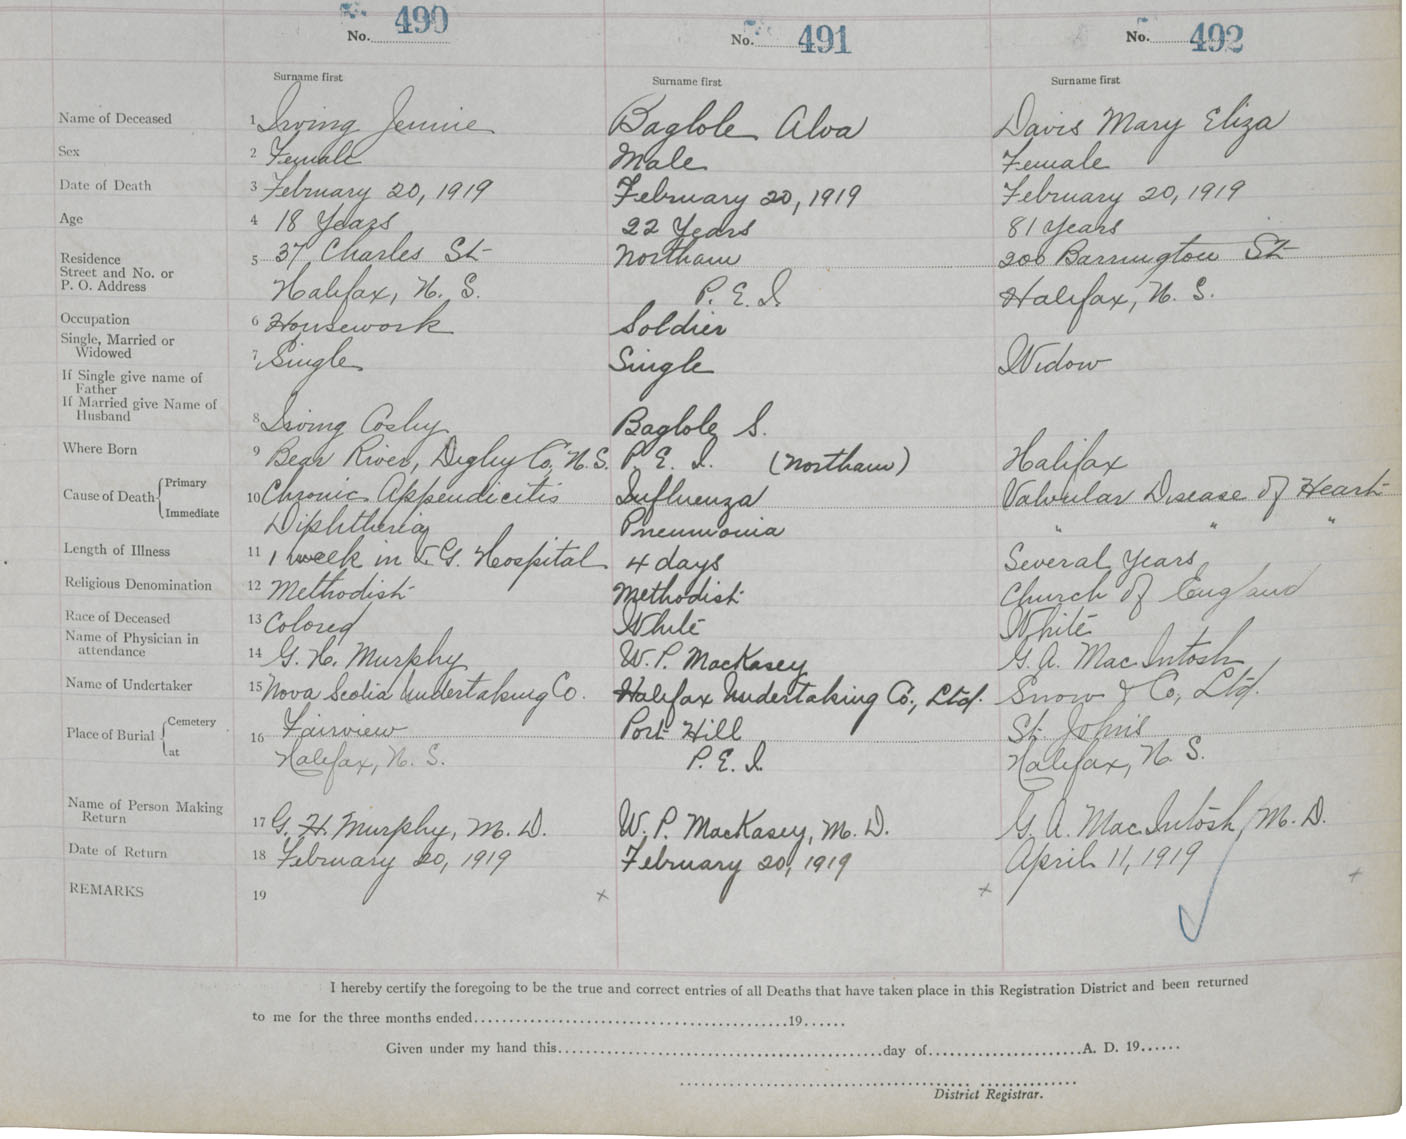 No. 490 No. 491 No. 492
Surname first Surname first Surname first
Name of Deceased 1 Irving Jennie Baglole Alva Davis Mary Eliza
Sex 2 Female Male Female
Date of Death 3 February 20, 1919 February 20, 1919 February 20, 1919
Age 4 18 Years 22 Years 81 Years
Residence 5 37 Charles St Northam 200 Barrington St
Street and No. or
P. O. Address Halifax, N. S. P. E. I. Halifax, N. S.
Occupation 6 Housework Soldier
Single, Married or
Widowed 7 Single Single Widow
If Single give name of
Father
If Married give Name of
Husband 8 Irving Cosby Baglole S.
Where Born 9 Bear River, Digby Co, N. S. P. E. I. (Northam) Halifax
Cause of Death Primary 10 Chronic Appendicitis Influenza Valvular Disease of Heart
Immediate Diphtheria Pneumonia " " "
Length of Illness 11 1 week in V. G. Hospital 4 days Several Years
Religious Denomination 12 Methodist Methodist Church of England
Race of Deceased 13 Colored White White
Name of Physician in
attendance 14 G. H. Murphy W. P. MacKasey G. A. MacIntosh
Name of Undertaker 15 Nova Scotia Undertaking Co. Halifax Undertaking Co., Ltd. Snow & Co, Ltd.
Place of Burial Cemetery 16 Fairview Port Hill St John's
at Halifax, N. S. P. E. I. Halifax, N. S.
Name of Person Making
Return 17 G. H. Murphy, M. D. W. P. MacKasey, M. D. G. A. MacIntosh, M. D.
Date of Return 18 February 20, 1919 February 20, 1919 April 11, 1919
REMARKS 19 x x x
I hereby certify the foregoing to be the true and correct entries of all Deaths that have taken place in this Registration District and been returned
to me for the three months ended........................................19......
Given under my hand this........................................day of....................A. D. 19......
District Registrar.